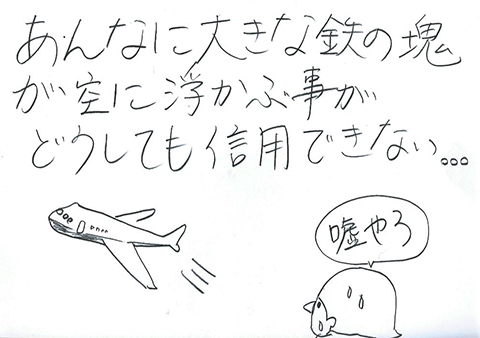 あんなに大きな鉄の塊
が空に浮かぶ事が
どうしても信用できない...
嘘やろ